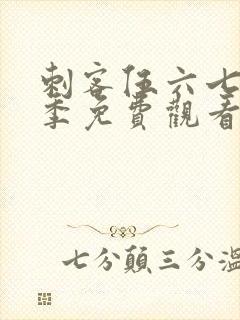 刺客伍六七
季免費觀看
七分顛三分溫